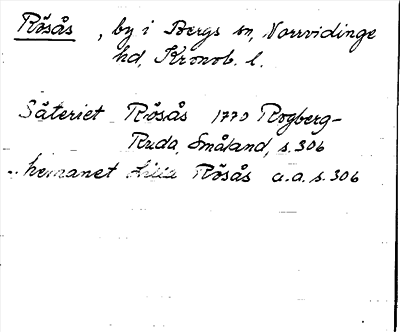 Rösås, by i Bergs sn, Norrvidinge
hd, Kronob. l.
Säteriet Rösås 1770 Rogberg-
Ruda, Småland, s. 306
hemanet Lilla Rösås a.a. s. 306